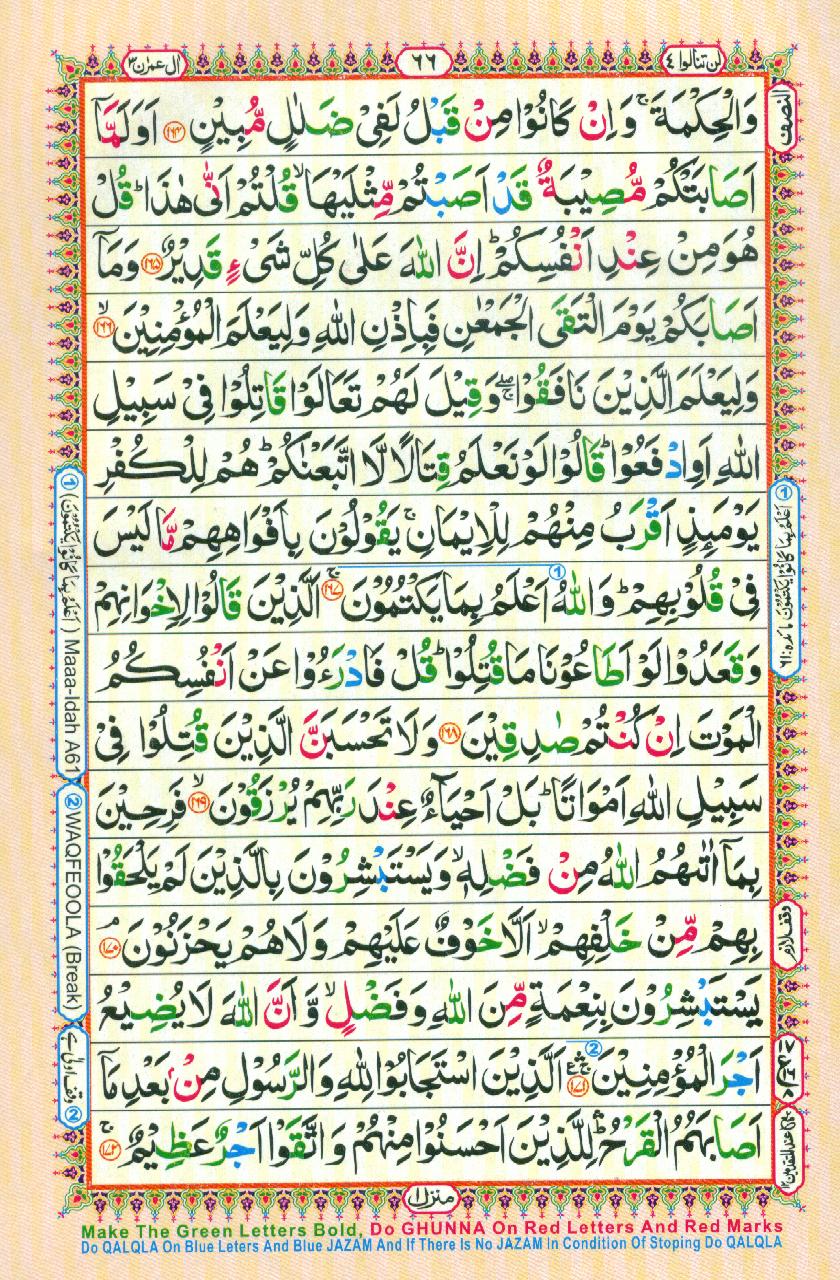 لن تنالوا ٤
٦٦
ال عمرٰن ٣
النصف
وَالْحِكْمَةَ ۚ وَاِنْ كَانُوْا مِنْ قَبْلُ لَفِیْ ضَلٰلٍ مُّبِیْنٍ ﴿۱۶۴﴾ اَوَلَمَّاۤ
اَصَابَتْكُمْ مُّصِیْبَةٌ قَدْ اَصَبْتُمْ مِّثْلَیْهَا ۙ قُلْتُمْ اَنّٰی هٰذَا ؕ قُلْ
هُوَ مِنْ عِنْدِ اَنْفُسِكُمْ ؕ اِنَّ اللّٰهَ عَلٰی كُلِّ شَیْءٍ قَدِیْرٌ ﴿۱۶۵﴾ وَمَاۤ
اَصَابَكُمْ یَوْمَ الْتَقَی الْجَمْعٰنِ فَبِاِذْنِ اللّٰهِ وَلِیَعْلَمَ الْمُؤْمِنِیْنَ ﴿۱۶۶﴾ ۙ
وَلِیَعْلَمَ الَّذِیْنَ نَافَقُوْا ۖۚ وَقِیْلَ لَهُمْ تَعَالَوْا قَاتِلُوْا فِیْ سَبِیْلِ
اللّٰهِ اَوِ ادْفَعُوْا ؕ قَالُوْا لَوْ نَعْلَمُ قِتَالًا لَّا اتَّبَعْنٰكُمْ ؕ هُمْ لِلْكُفْرِ
یَوْمَىِٕذٍ اَقْرَبُ مِنْهُمْ لِلْاِیْمَانِ ۚ یَقُوْلُوْنَ بِاَفْوَاهِهِمْ مَّا لَیْسَ
فِیْ قُلُوْبِهِمْ ؕ وَاللّٰهُ اَعْلَمُ بِمَا یَكْتُمُوْنَ ﴿۱۶۷﴾ ۚ اَلَّذِیْنَ قَالُوْا لِاِخْوَانِهِمْ
وَقَعَدُوْا لَوْ اَطَاعُوْنَا مَا قُتِلُوْا ؕ قُلْ فَادْرَءُوْا عَنْ اَنْفُسِكُمُ
الْمَوْتَ اِنْ كُنْتُمْ صٰدِقِیْنَ ﴿۱۶۸﴾ وَلَا تَحْسَبَنَّ الَّذِیْنَ قُتِلُوْا فِیْ
سَبِیْلِ اللّٰهِ اَمْوَاتًا ؕ بَلْ اَحْیَآءٌ عِنْدَ رَبِّهِمْ یُرْزَقُوْنَ ﴿۱۶۹﴾ ۙ فَرِحِیْنَ
بِمَاۤ اٰتٰىهُمُ اللّٰهُ مِنْ فَضْلِهٖ ۙ وَیَسْتَبْشِرُوْنَ بِالَّذِیْنَ لَمْ یَلْحَقُوْا
بِهِمْ مِّنْ خَلْفِهِمْ ۙ اَلَّا خَوْفٌ عَلَیْهِمْ وَلَا هُمْ یَحْزَنُوْنَ ﴿۱۷۰﴾ ۘ
یَسْتَبْشِرُوْنَ بِنِعْمَةٍ مِّنَ اللّٰهِ وَفَضْلٍ ۙ وَّاَنَّ اللّٰهَ لَا یُضِیْعُ
اَجْرَ الْمُؤْمِنِیْنَ ﴿۱۷۱﴾ اَلَّذِیْنَ اسْتَجَابُوْا لِلّٰهِ وَالرَّسُوْلِ مِنْۢ بَعْدِ مَاۤ
اَصَابَهُمُ الْقَرْحُ ۛؕ لِلَّذِیْنَ اَحْسَنُوْا مِنْهُمْ وَاتَّقَوْا اَجْرٌ عَظِیْمٌ ﴿۱۷۲﴾ ۚ
① اَعْلَمُ بِمَا كَانُوْا یَكْتُمُوْنَ مائدہ: ٦١
وقف لازم
① (اَعْلَمُ بِمَا كَانُوْا یَكْتُمُوْنَ) Maaa-Idah A61
② WAQFEOOLA (Break)
② وقف اولیٰ ہے
منزل ١
Make The Green Letters Bold, Do GHUNNA On Red Letters And Red Marks
Do QALQLA On Blue Leters And Blue JAZAM And If There Is No JAZAM In Condition Of Stoping Do QALQLA